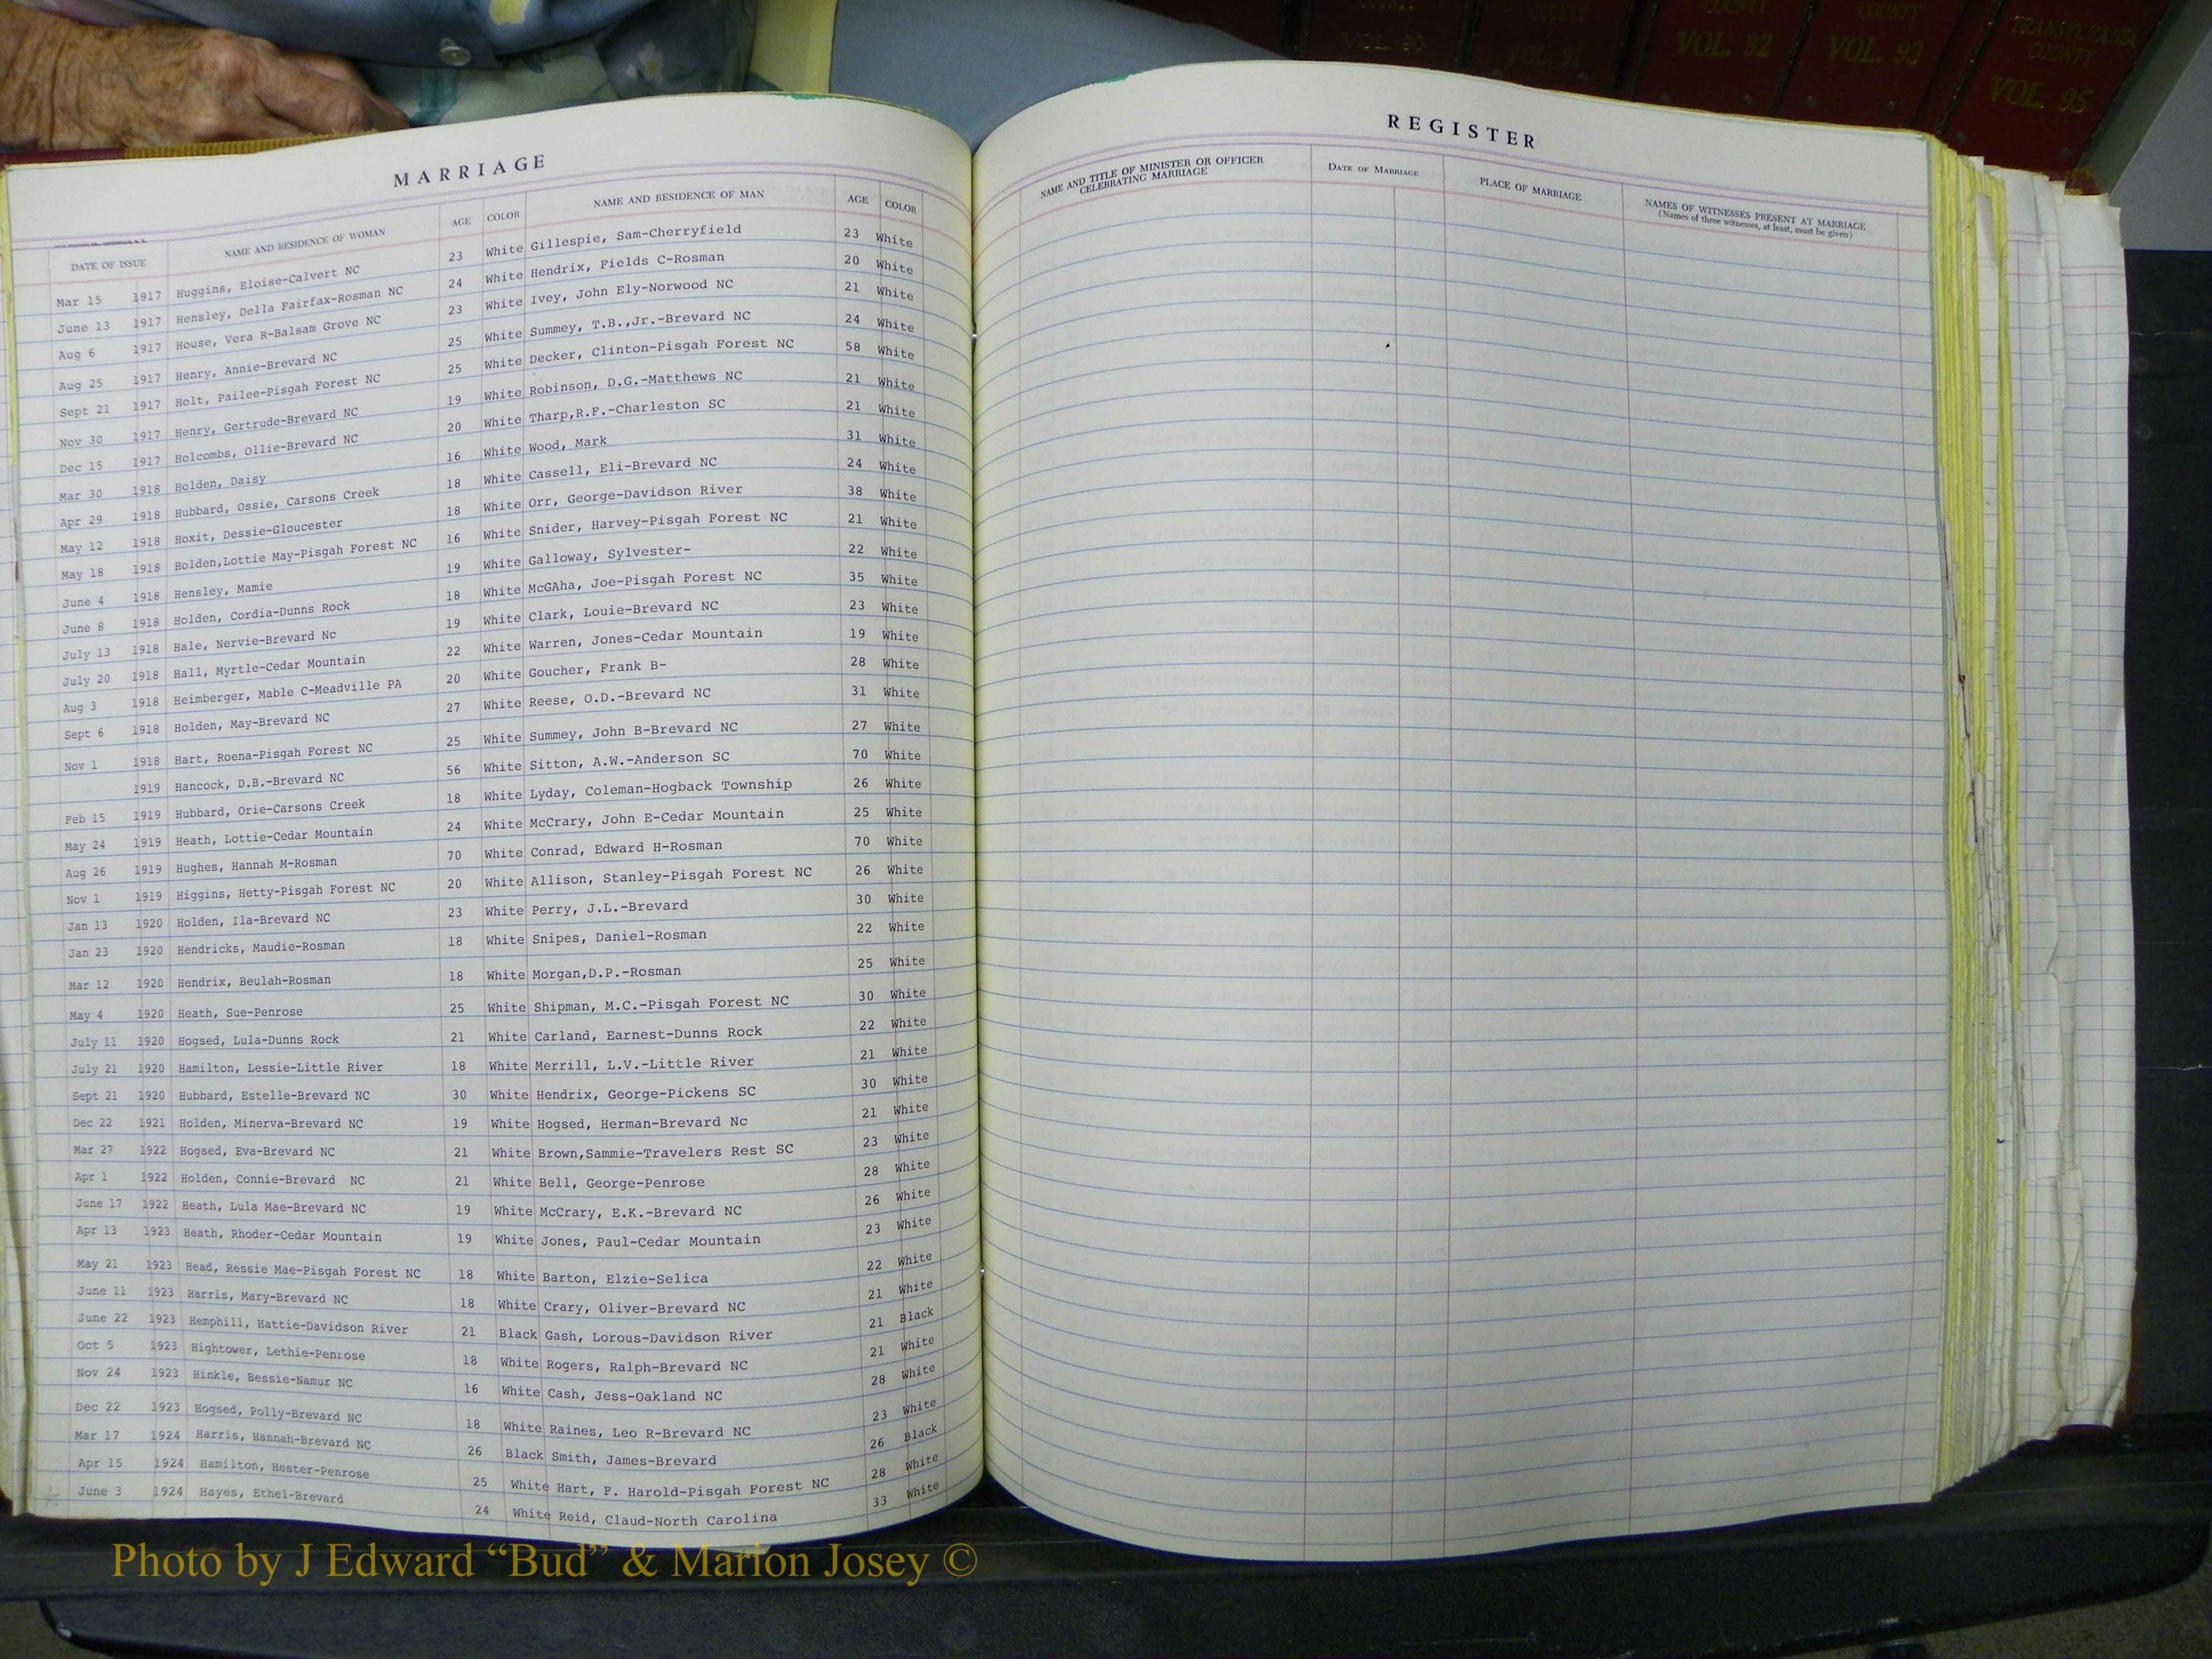 COUNTY
VOL. 90
COUNTY
VOL. 91
COUNTY
VOL. 92
COUNTY
VOL. 93
TRANSYLVANIA
COUNTY
VOL. 95
MARRIAGE
DATE OF ISSUE NAME AND RESIDENCE OF WOMAN AGE COLOR NAME AND RESIDENCE OF MAN AGE COLOR
Mar 15 1917 Huggins, Eloise-Calvert NC 23 White Gillespie, Sam-Cherryfield 23 White
June 13 1917 Hensley, Della Fairfax-Rosman NC 24 White Hendrix, Fields C-Rosman 20 White
Aug 6 1917 House, Vera R-Balsam Grove NC 23 White Ivey, John Ely-Norwood NC 21 White
Aug 25 1917 Henry, Annie-Brevard NC 25 White Summey, T.B.,Jr.-Brevard NC 24 White
Sept 21 1917 Holt, Pailee-Pisgah Forest NC 25 White Decker, Clinton-Pisgah Forest NC 58 White
Nov 30 1917 Henry, Gertrude-Brevard NC 19 White Robinson, D.G.-Matthews NC 21 White
Dec 15 1917 Holcombs, Ollie-Brevard NC 20 White Tharp,R.F.-Charleston SC 21 White
Mar 30 1918 Holden, Daisy 16 White Wood, Mark 31 White
Apr 29 1918 Hubbard, Ossie, Carsons Creek 18 White Cassell, Eli-Brevard NC 24 White
May 12 1918 Hoxit, Dessie-Gloucester 18 White Orr, George-Davidson River 38 White
May 18 1918 Holden,Lottie May-Pisgah Forest NC 16 White Snider, Harvey-Pisgah Forest NC 21 White
June 4 1918 Hensley, Mamie 19 White Galloway, Sylvester- 22 White
June 8 1918 Holden, Cordia-Dunns Rock 18 White McGAha, Joe-Pisgah Forest NC 35 White
July 13 1918 Hale, Nervie-Brevard Nc 19 White Clark, Louie-Brevard NC 23 White
July 20 1918 Hall, Myrtle-Cedar Mountain 22 White Warren, Jones-Cedar Mountain 19 White
Aug 3 1918 Heimberger, Mable C-Meadville PA 20 White Goucher, Frank B- 28 White
Sept 6 1918 Holden, May-Brevard NC 27 White Reese, O.D.-Brevard NC 31 White
Nov 1 1918 Hart, Roena-Pisgah Forest NC 25 White Summey, John B-Brevard NC 27 White
1919 Hancock, D.B.-Brevard NC 56 White Sitton, A.W.-Anderson SC 70 White
Feb 15 1919 Hubbard, Orie-Carsons Creek 18 White Lyday, Coleman-Hogback Township 26 White
May 24 1919 Heath, Lottie-Cedar Mountain 24 White McCrary, John E-Cedar Mountain 25 White
Aug 26 1919 Hughes, Hannah M-Rosman 70 White Conrad, Edward H-Rosman 70 White
Nov 1 1919 Higgins, Hetty-Pisgah Forest NC 20 White Allison, Stanley-Pisgah Forest NC 26 White
Jan 13 1920 Holden, Ila-Brevard NC 23 White Perry, J.L.-Brevard 30 White
Jan 23 1920 Hendricks, Maudie-Rosman 18 White Snipes, Daniel-Rosman 22 White
Mar 12 1920 Hendrix, Beulah-Rosman 18 White Morgan,D.P.-Rosman 25 White
May 4 1920 Heath, Sue-Penrose 25 White Shipman, M.C.-Pisgah Forest NC 30 White
July 11 1920 Hogsed, Lula-Dunns Rock 21 White Carland, Earnest-Dunns Rock 22 White
July 21 1920 Hamilton, Lessie-Little River 18 White Merrill, L.V.-Little River 21 White
Sept 21 1920 Hubbard, Estelle-Brevard NC 30 White Hendrix, George-Pickens SC 30 White
Dec 22 1921 Holden, Minerva-Brevard NC 19 White Hogsed, Herman-Brevard Nc 21 White
Mar 27 1922 Hogsed, Eva-Brevard NC 21 White Brown,Sammie-Travelers Rest SC 23 White
Apr 1 1922 Holden, Connie-Brevard NC 21 White Bell, George-Penrose 28 White
June 17 1922 Heath, Lula Mae-Brevard NC 19 White McCrary, E.K.-Brevard NC 26 White
Apr 13 1923 Heath, Rhoder-Cedar Mountain 19 White Jones, Paul-Cedar Mountain 23 White
May 21 1923 Head, Ressie Mae-Pisgah Forest NC 18 White Barton, Elzie-Selica 22 White
June 11 1923 Harris, Mary-Brevard NC 18 White Crary, Oliver-Brevard NC 21 White
June 22 1923 Hemphill, Hattie-Davidson River 21 Black Gash, Lorous-Davidson River 21 Black
Oct 5 1923 Hightower, Lethie-Penrose 18 White Rogers, Ralph-Brevard NC 21 White
Nov 24 1923 Hinkle, Bessie-Namur NC 16 White Cash, Jess-Oakland NC 28 White
Dec 22 1923 Hogsed, Polly-Brevard NC 18 White Raines, Leo R-Brevard NC 23 White
Mar 17 1924 Harris, Hannah-Brevard NC 26 Black Smith, James-Brevard 26 Black
Apr 15 1924 Hamilton, Hester-Penrose 25 White Hart, F. Harold-Pisgah Forest NC 28 White
June 3 1924 Hayes, Ethel-Brevard 24 White Reid, Claud-North Carolina 33 White
REGISTER
NAME AND TITLE OF MINISTER OR OFFICER CELEBRATING MARRIAGE DATE OF MARRIAGE PLACE OF MARRIAGE NAMES OF WITNESSES PRESENT AT MARRIAGE
(Names of three witnesses, at least, must be given)
Photo by J Edward “Bud” & Marion Josey ©